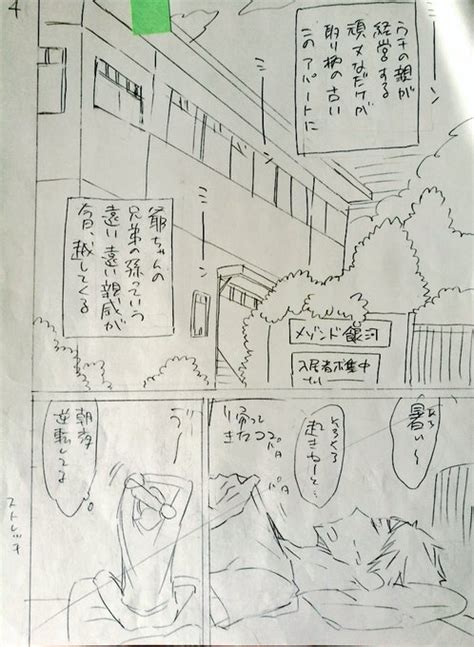 4
ウチの親が
経営する
頑丈なだけが
取り柄の古い
このアパートに
ミーンミーン
ミーンミーン
爺ちゃんの
兄弟の孫っていう
遠い遠い親戚が
今日、越してくる
メゾンド銀河
入居者募集中
暑い〜
そろそろ
起きねーと…
パタ
パタ
うー
朝夜
逆転してる
ストレッチ